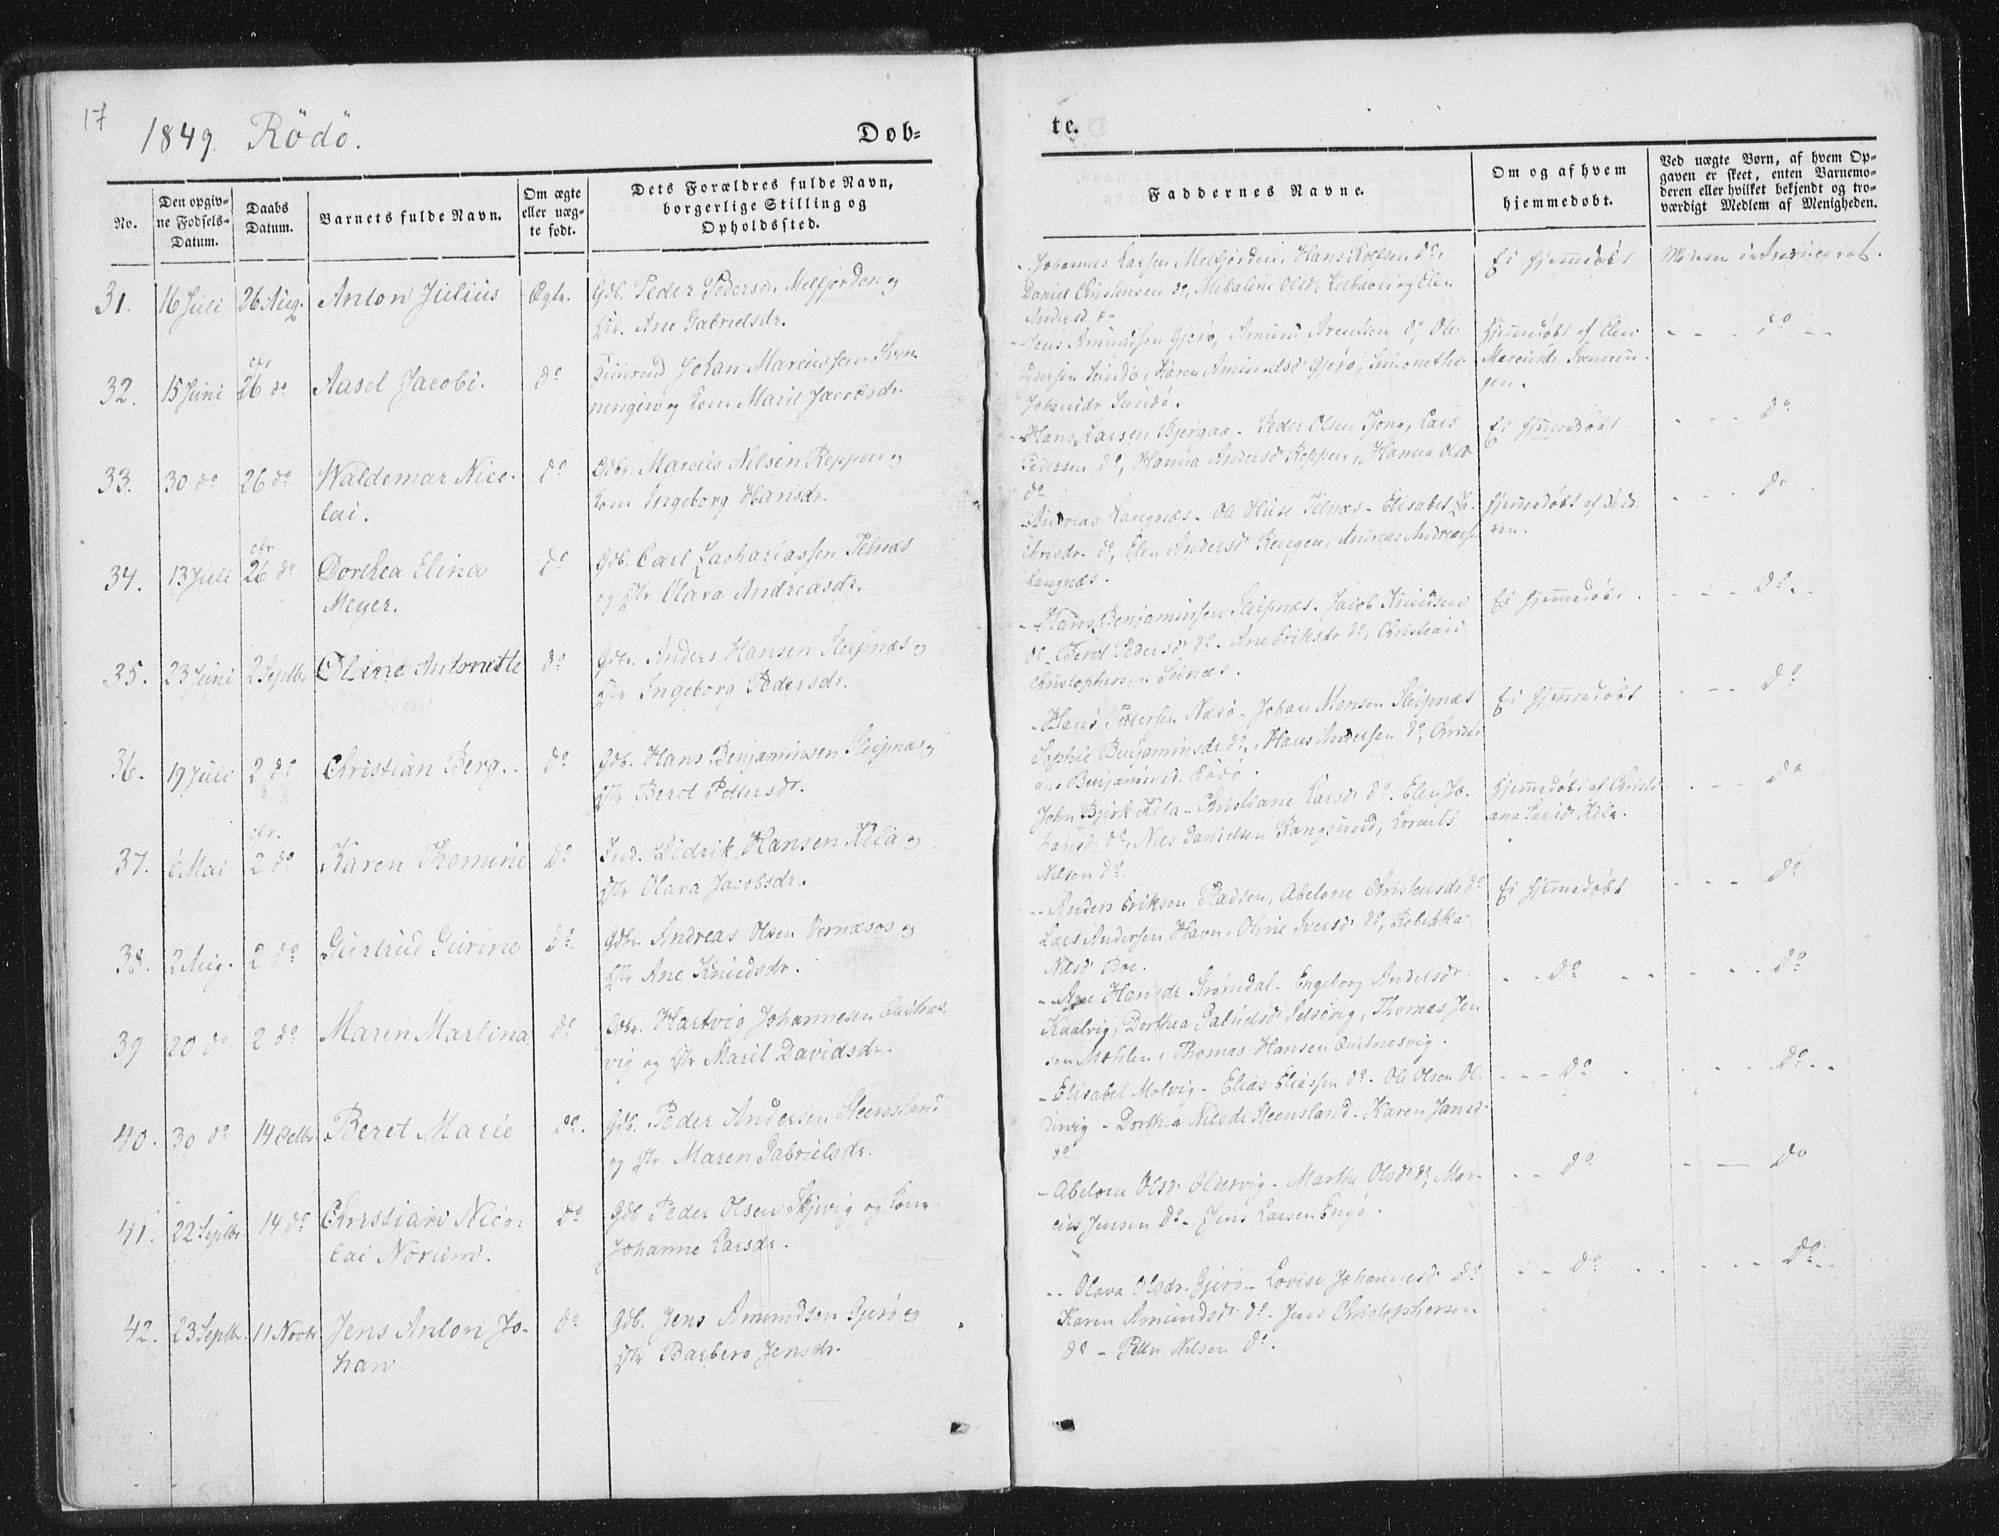 17
1849. Rödö.
Dob=
te.
No.
Den opgiv-
ne Fodsels-
Datum.
Daabs
Datum.
Barnets fulde Navn.
Om ægte
eller uæg-
te født.
Dets Forældres fulde Navn,
borgerlige Stilling og
Opholdssted.
Faddernes Navne.
Om og af hvem
hjemmedøbt.
Ved uægte Børn, af hvem Op-
gaven er skeet, enten Barnemo-
deren eller hvilket bekjendt og tro-
værdigt Medlem af Menigheden.
31. 16 Juli 26 Aug. Anton Julius Ægte. Gdb. Peder Pedersen Melfjorden og
Hr. Ane Gabrielsdr.
Johannes Larsen Melfjorden, Hans Do,
Daniel Christensen do, Mikaline Olsdr og Elen
Andersd.
Ei hjemmedøbt
Moderen introduceret.
32. 15 Juni 26 do Aasel Jacobi. do Johan Marcussen
og Kone Marit Jacobsdr.
Jens Amundsen Gjerø, Amund Arentsen do, Ole
Pedersen Sundø, Karen Amundsd Gjerø, Simonethe
Johansdr Sundø.
Hjemmedøbt af Elen
Marcusdr
do
33. 30 do 26 do Waldemar Nico-
lai.
do Gdbr. Marcus Nilsen Reppen og
Kone Ingeborg Hansdr.
Hans Larsen Bjergaa - Peder Olsen Tjong, Lars
Pedersen do, Hanna Andersd Reppen, Hanna Olsd
do
Ei hjemmedøbt
do
34. 13 Juli 26 do Dorthea Elina
Meyer.
do Gdb. Carl Zachariassen Selnæs
og Hr Olava Andreasdr.
Andreas Langnæs - Ole Selnæs - Elisabet Za-
chrisdr do, Elen Andersd Rengen, Andreas Andreass
Langnæs.
Hjemmedøbt af
do
35. 23 Juni 2 Septbr Oline Antonette do Gdbr. Anders Hansen Sleipnæs og
Hr Ingeborg Pedersdr.
Hans Benjaminsen Sleipnæs. Jacob Knudsen
do - Beret Pedersd do - Ane Eriksdr do, Christian
Christophersen Selnæs.
Ei hjemmedøbt
do
36. 19 Juli 2 do Christian Berg. do Gdb. Hans Benjaminsen Sleipnæs og
Hr Beret Pettersdr.
Hans Pettersen Næsø - Johan Monsen Sleipnæs
Sophie Benjaminsdr do, Hans Andersen do,
Benjaminsd. Rödö.
Ei hjemmedøbt
do
37. 6 Mai 2 do Karen Thomine do Ind. Didrik Hansen Kila og
Hr Olava Jacobsdr.
John Bjerk Kila - Christiane Larsd do - Elen Jo-
hansd do, Niels Danielsen Rangsund,
Nilsen do.
Hjemmedøbt af Christi-
ana Larsd Kila.
do
38. 2 Aug. 2 do Gurtrud Gurine do Gdbr. Andreas Olsen Vernæsos og
Hr Ane Knudsdr.
Anders Eriksen Stadsen, Abelone Christensdr do
Lars Andersen Havn, Oline Iversd do, Rebekka
Nilsd Boe.
Ei hjemmedøbt
do
39 20 do 2 do Maren Martina do Gdbr. Hartvig Johannesen
vig og Hr Marit Davidsdr.
Ane Hansdr Strømdal - Engeborg Andersdr
Kaalvig, Dorthea Gabrielsd Selsövig, Thomas Jen
sen Mohlen, Thomas Hansen
do
do
40. 30 do 14 Octbr Beret Marie do. Gdb. Peder Andersen Steensland
og Hr Maren Gabrielsdr.
Elisabet Molvig - Elias Eliassen do - Ole Olsen Ol-
dervig - Dorthea Nilsdr Steensland - Karen Jansd
do
do
do
41. 22 Septbr 14 do Christian Nico-
lai Norum.
do Gdb Peder Olsen Skjevig og Kone
Johanne Larsdr.
Abelone Olsd Oldervig - Marthe Olsdr do, Mar-
cus Jensen do - Jens Larsen Engö.
do
do
42. 23 Septbr. 11 Novbr Jens Anton Jo-
han
do Gdb. Jens Amundsen Gjerø og
Hr Barbero Jensdr.
Olava Olsdr Gjerø - Lovise Johannesd do
Karen Amundsdr do. Jens Christophersen
do - Peder Nilsen do.
do
do